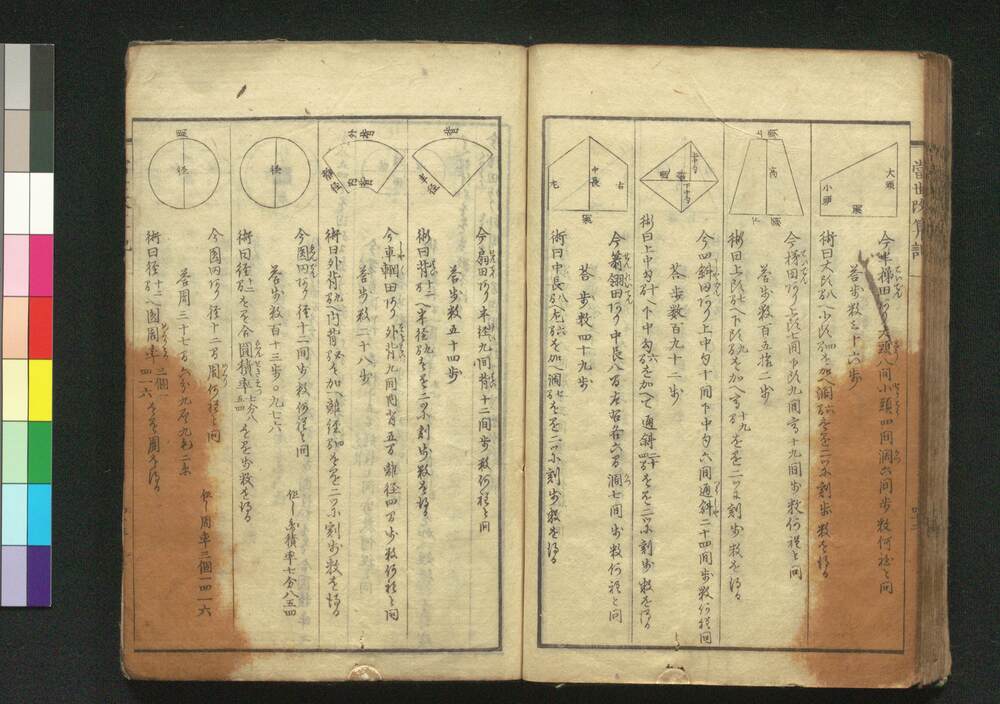 大頭
小頭
濶
今半梯田アリ大頭八間小頭四間濶六間歩数何程と問
答歩数三十六歩
術曰大頭八へ小頭四を加へ濶六を乗二ツに割歩数を得る
上頭
高
下頭
今梯田アリ上頭七間下頭九間高十九間歩数何程と問
答歩数百五拾二歩
術曰上頭七へ下頭九を加へ高十九を乗二ツに割歩数を得る
上中勾
下中勾
通斜
今四斜田アリ上中勾十間下中勾六間通斜二十四間歩数何程問
答歩数百九十二歩
術曰上中勾十へ下中勾六を加へて通斜二十四を乗二ツに割歩数を得る
中長
左
右
濶
今箭翎田アリ中長八間左右各六間濶七間歩数何程と問
答歩数四十九歩
術曰中長八へ左六を加へ濶七を乗二ツに割歩数を得る
背
半径
今扇田アリ半径九間背十二間歩数何程と問
答歩数五十四歩
術曰背十二へ半径九を乗二ツに割歩数を得る
外背
内背
離径
今車輞田アリ外背九間内背五間離径四間歩数何程と問
答歩数二十八歩
術曰外背九へ内背五を加へ離径四を乗二ツに割歩数を得る
径
今圓内アリ径十二間歩数何程と問
但シ圓積率七分八五四
答歩数百十三歩〇九七六
術曰径十二を自合圓積率七分八五四を乗歩数を得る
周
径
今圓内アリ径十二間周何程と問
但シ周率三個一四一六
答周三十七間六分九厘九毛二糸
術曰径十二へ圓周率三個一四一六を乗周を得る